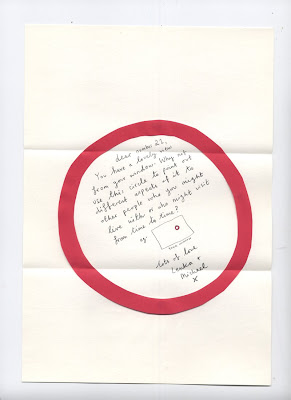 dear number 21,
You have a lovely view
from your window. Why not
use this circle to point out
different aspects of it to
other people who you might
live with or who might visit
from time to time?
eg
your window
lots of love
Lenka +
Michael
x